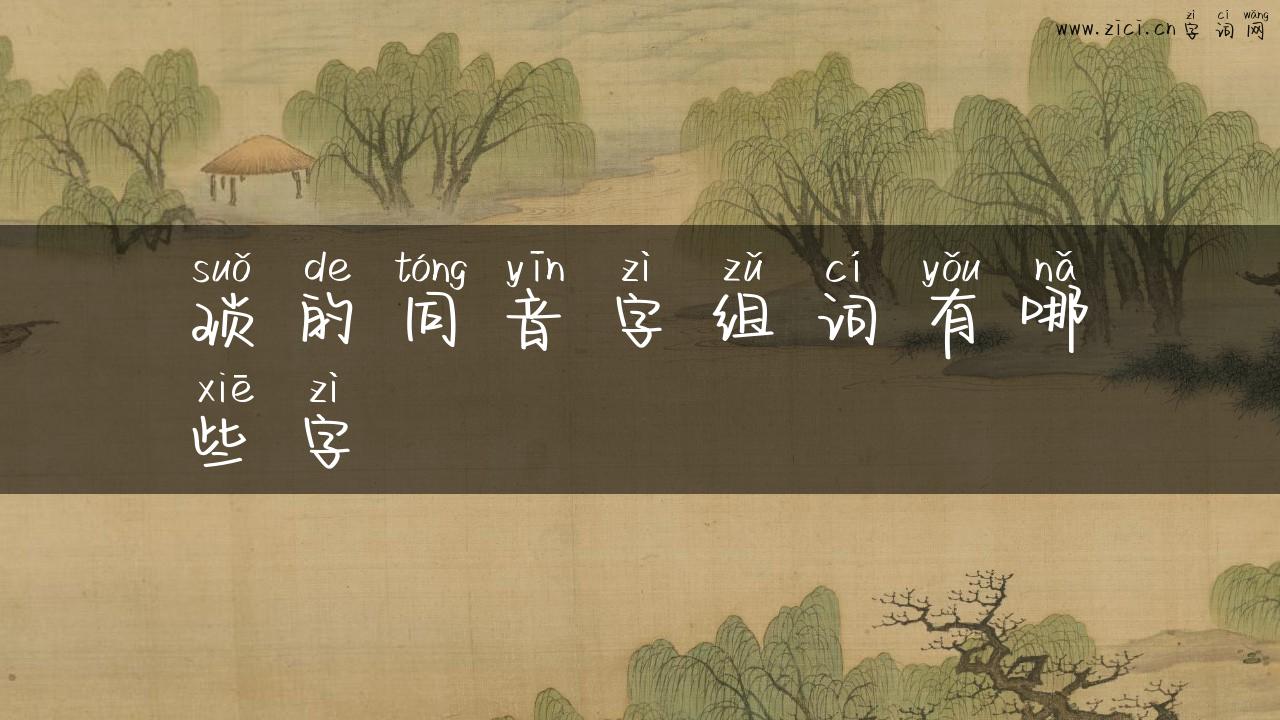 www.zici.cn
zì cí wǎng
字词网
suǒ de tóng yīn zì zǔ cí yǒu nǎ
琐的同音字组词有哪
xiē zì
些字